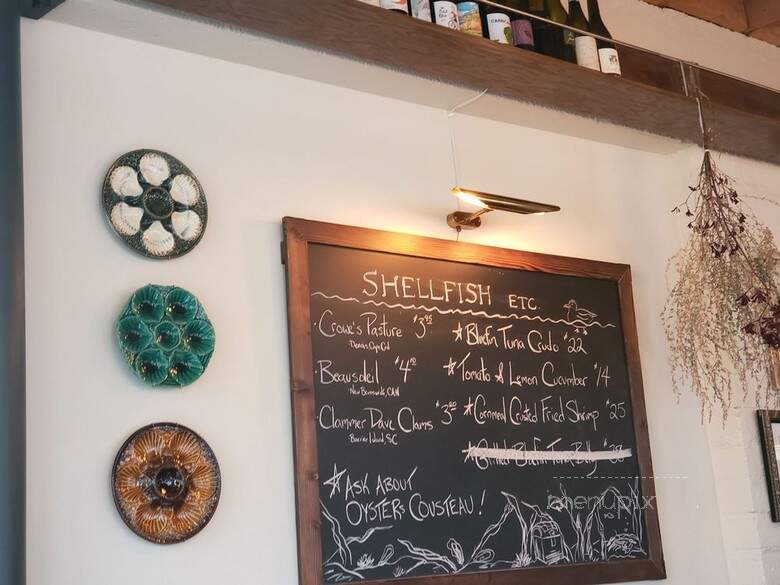 SHELLFISH ETC.
Crowe's Pasture $3.95
Dennis, Cape Cod
Beausoleil $4.10
New Brunswick, CAN
Clammer Dave Clams $3.50
Barrier Island, SC
Bluefin Tuna Crudo $22
Tomato & Lemon Cucumber $14
Cornmeal Crusted Fried Shrimp $25
Grilled Bluefin Tuna Belly
ASK ABOUT
OYSTERS COUSTEAU!
menupix